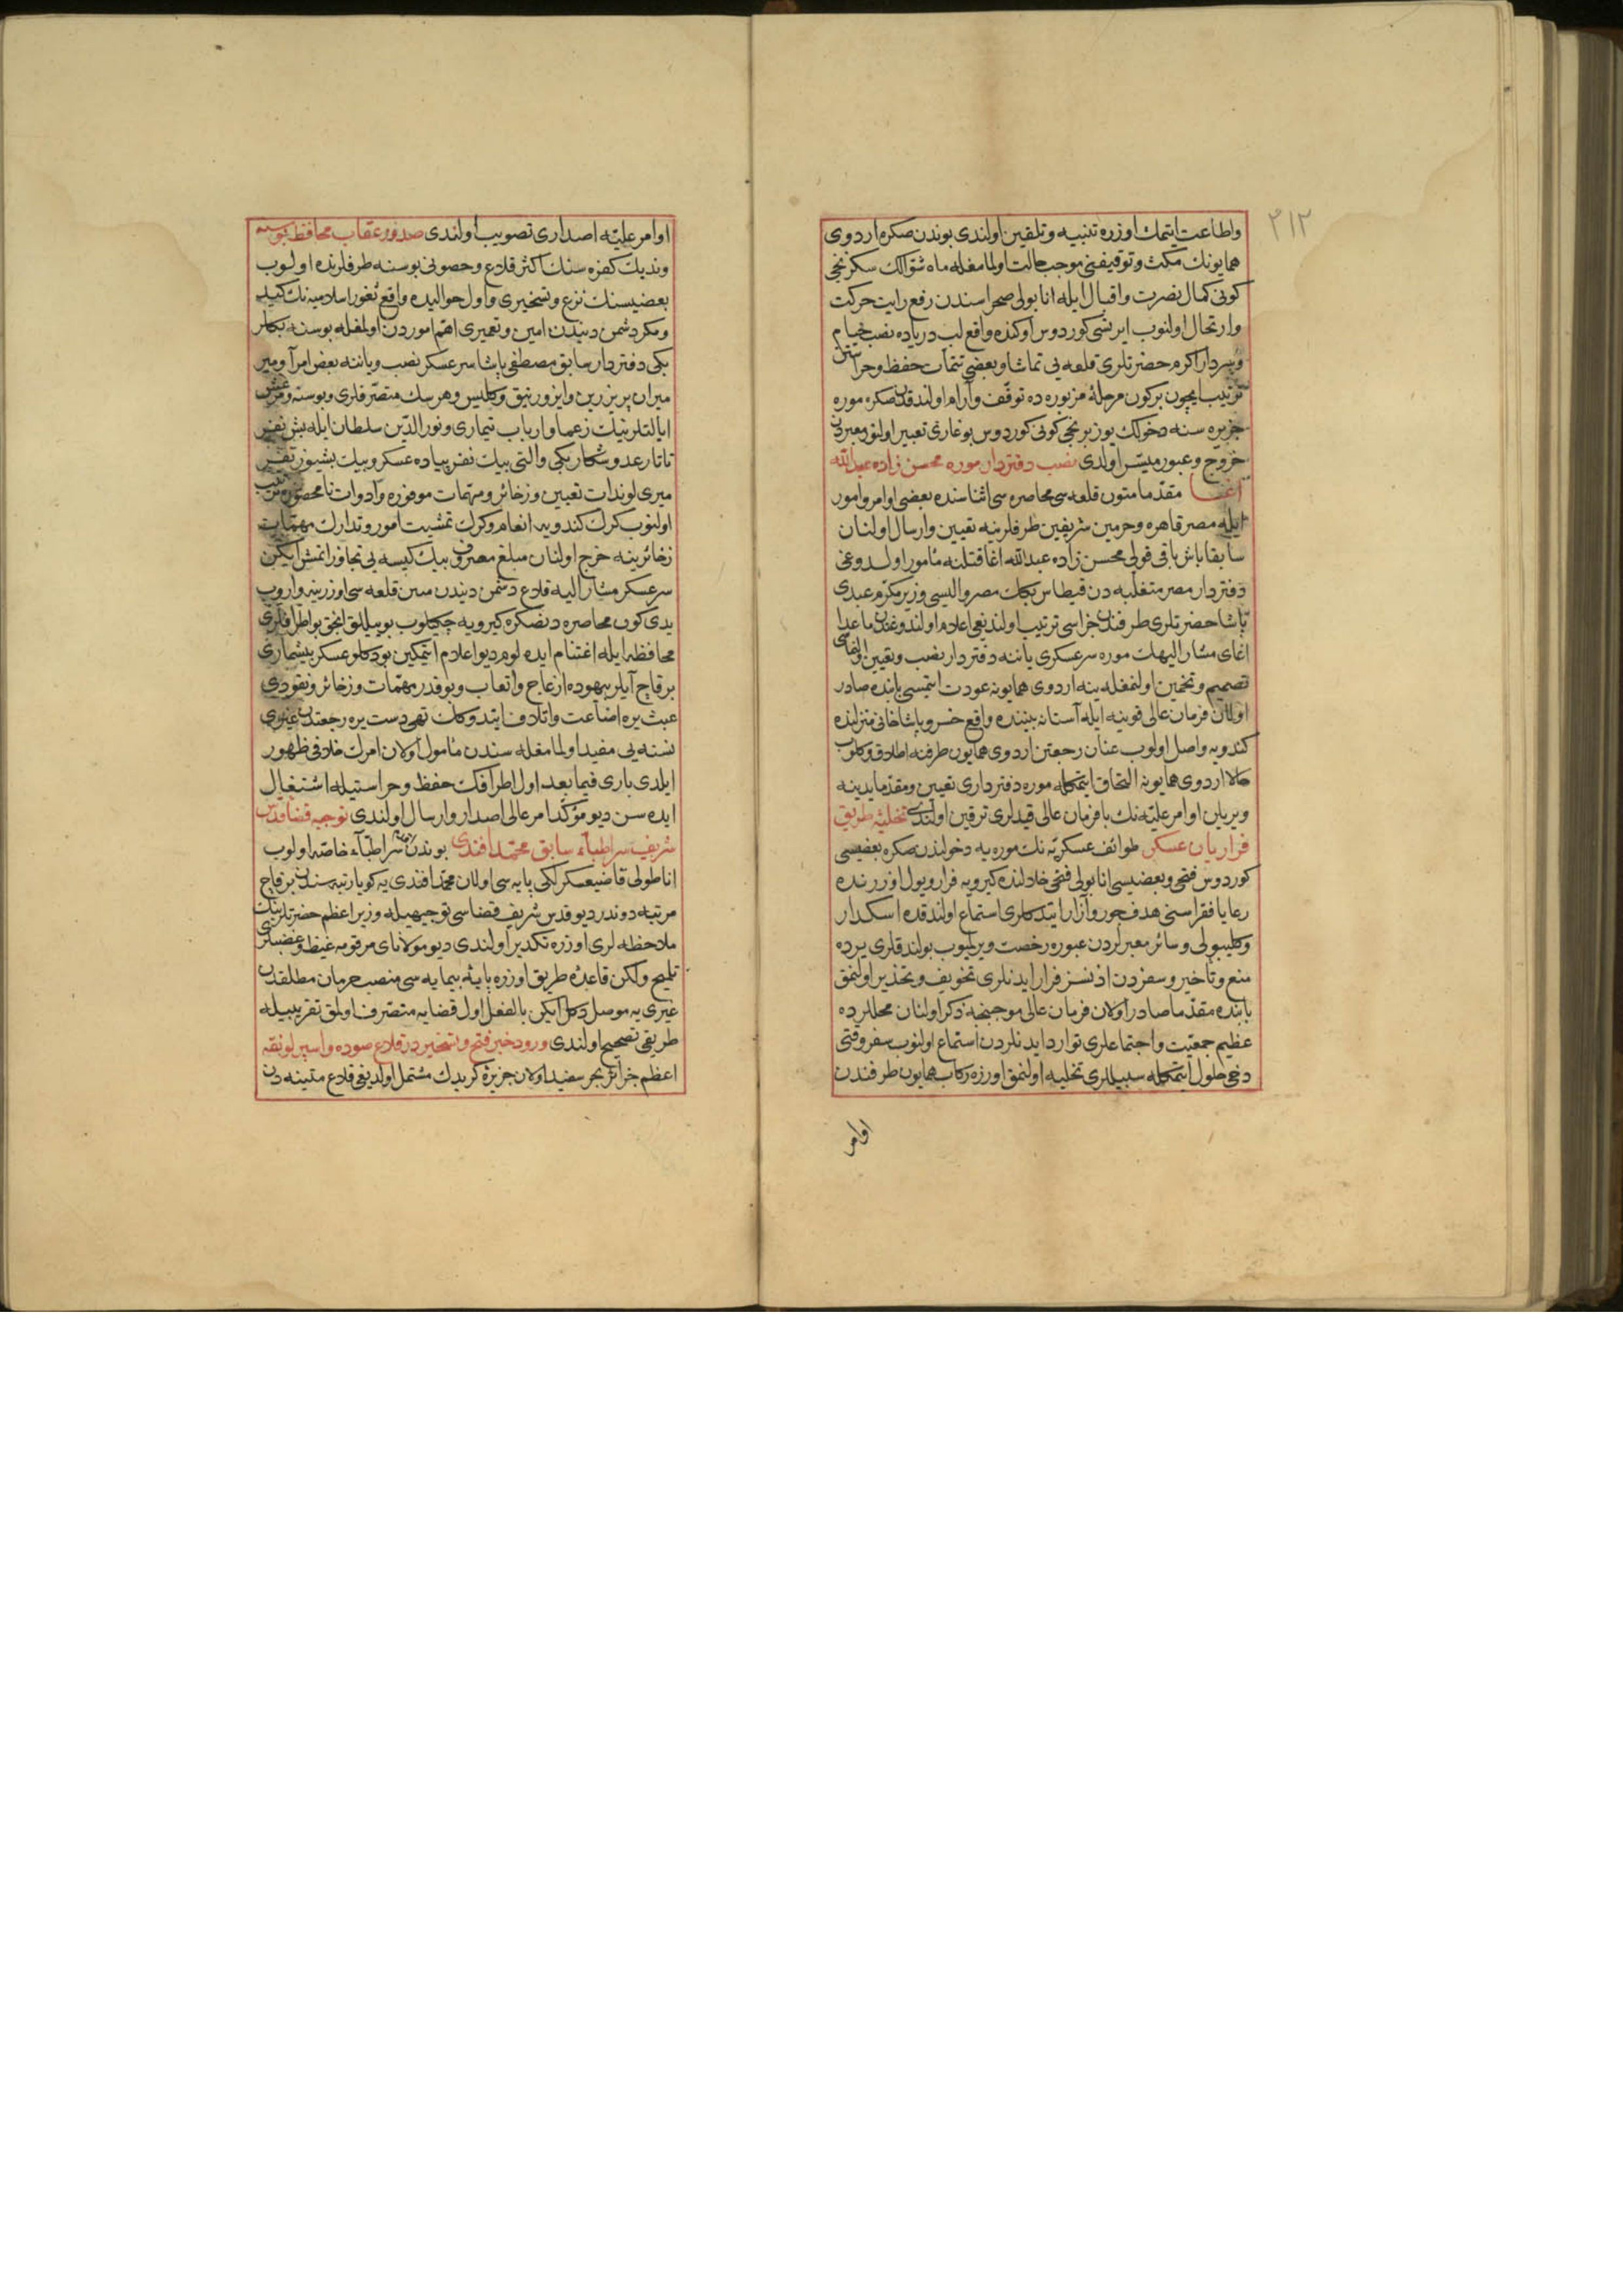 ٢١٢
واطاعت ايتمك اوزره تنبيه وتلقين اولندى بوندن صكره اردوى
همايونك مكث وتوقيفنى موجب حالت اولمامغله ماه شوالك سكزنجى
كونى كمال نصرت واقبال ايله انابولى صحراسندن رفع رايت حركت
وارتحال اولنوب ايرتسى كوردوس اوكنده واقع لب درياده نصب خيام
وسردار اكرم حضرتلرى قلعه يى تماشا وبعضى تتمات حفظ وحراستن
ترتيب ايچون بر كون مرحلهٔ مزبوره ده توقف وآرام اولندقدن صكره موره
جزيره سنه دخولك يوز برنجى كونى كوردوس بوغازى تعبير اولنور معبردن
خروج وعبور ميسر اولدى نصب دفتردار موره محسن زاده عبد الله
اغا مقدما متون قلعه سى محاصره سى اثناسنده بعضى اوامر وامور
ايله مصر قاهره وحرمين شريفين طرفلرينه تعيين وارسال اولنان
سابقا باش باقى قولى محسن زاده عبد الله اغا قتلنه مأمور اولدوغى
دفتردار مصر متغلبه دن قيطاس بك مصر واليسى وزير مكرم عبدى
پاشا حضرتلرى طرفندن جزاسى ترتيب اولنديغى اعلام اولندوغندن ماعدا
اغاى مشار اليهك موره سرعسكرى ياننه دفتردار نصب وتعيين اولنماسى
تصميم وتخمين اولنمغله ينه اردوى همايونه عودت ايتمسى بابنده صادر
اولان فرمان عالى قوينه ايله آستانه بيننده واقع خسرو پاشا خانى منزلنده
كندويه واصل اولوب عنان رجعتن اردوى همايون طرفنه اطلاق وكلوب
حالا اردوى همايونه التحاق ايتمكله موره دفتردارى تعيين ومقدما يدينه
ويريلن اوامر عليه نك با فرمان عالى قيدلرى ترقين اولندى تخليهٔ طريق
فراريان عسكر طوائف عسكريه نك موره يه دخولندن صكره بعضيسى
كوردوس فتحى وبعضيسى انابولى فتحى خلالنده كيرويه فرار ويول اوزرنده
رعايا فقراسنى هدف جور وآزار ايتدكلرى استماع اولندقده اسكدار
وكليبولى وسائر معبرلردن عبوره رخصت ويرلميوب بولندقلرى يرده
منع وتأخير وسفردن اذنسز فرار ايدنلرى تخويف وتحذير اولنمق
بابنده مقدما صادر اولان فرمان عالى موجبنجه ذكر اولنان محللرده
عظيم جمعيت واجتماعلرى توارد ايدنلردن استماع اولنوب سفر وقتى
دخى حلول ايتمكله سبيللرى تخليه اولنمق اوزره ركاب همايون طرفندن
اوامر
اوامر عليه اصدارى تصويب اولندى صدور عقاب محافظ بوسنه
ونديك كفره سنك اكثر قلاع وحصونى بوسنه طرفلرنده اولوب
بعضيسنك نزع وتسخيرى واول حواليده واقع ثغور اسلاميه نك كيد
ومكر دشمن دنيدن امين وتعميرى اهم اموردن اولمغله بوسنه بكلر
بكى دفتردار سابق مصطفى پاشا سرعسكر نصب وياننه بعض امرا ومير
ميران پريزرين وايزورنيق وكليس وهرسك متصرفلرى وبوسنه
ايالتلرينك زعما وارباب تيمارى ونور الدين سلطان ايله بش نفر
تاتار عدو شكار يكى والتى بيك نفر پياده عسكر وبيك بشيوز نفر
ميرى لوندات تعيين وزخائر ومهمات موفوره وادوات نامحصوره
اولنوب كرك كندويه انعام وكرك تمشيت امور وتدارك مهمات
زخائرينه خرج اولنان مبلغ مصروف بيك كيسه يى تجاوز ايتمش ايكن
سرعسكر مشار اليه قلاع دشمن دنيدن سين قلعه سى اوزرينه واروب
يدى كون محاصره دنصكره كيرويه چكيلوب بو ييللق انجق بو اطرافلرى
محافظه ايله اغتنام ايده لوم ديو اعلام ايتمكين بو دكلو عسكر بيشمارى
بر قاچ آيلر بيهوده ازعاج واتعاب وبو قدر مهمات وزخائر ونقودى
عبث يره اضاعت واتلاف ايتدوكك تهى دست يره رجعتدن غيرى
نسنه يى مفيد اولمامغله سندن مأمول اولان امرك خلافى ظهور
ايلدى بارى فيما بعد اول اطرافك حفظ وحراستيله اشتغال
ايده سن ديو مؤكد امر عالى اصدار وارسال اولندى توجيه قضاء قدس
شريف سر اطباء سابق محمد افندى بوندن اقدم سر اطباء خاصه اولوب
اناطولى قاضيعسكرلكى پايه سى اولان محمد افندى يه كويا رتبه سندن بر قاچ
مرتبه دوندر ديو قدس شريف قضاسى توجيهيله وزير اعظم حضرتلرينك
ملاحظه لرى اوزره تكدير اولندى ديو مولاناى مرقومه غيظ وغضبلرن
تلميح ولكن قاعدهٔ طريق اوزره پايهٔ بيمايه سى منصب حرمان مطلقدن
غيرى يه موصل دكل ايكن بالفعل اول قضايه متصرف اولمق تقريبيله
طريقى تصحيح اولندى ورود خبر فتح وتسخير در قلاع صوده واسپرلونقه
اعظم جزائر بحر سفيد اولان جزيرهٔ كريدك مشتمل اولديغى قلاع متينه دن